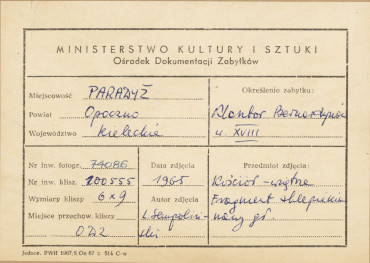 MINISTERSTWO KULTURY I SZTUKI
Ośrodek Dokumentacji Zabytków
Miejscowość PARADYŻ
Powiat Opoczno
Województwo kieleckie
Określenie zabytku:
Klasztor Bernardynów
w. XVIII
Nr inw. fotogr. 74086
Nr inw. kliszy 200555
Wymiary kliszy 6x9
Miejsce przechow. kliszy
ODZ
Data zdjęcia
1965
Autor zdjęcia
Przedmiot zdjęcia:
Kościół - wnętrze
Fragment sklepienia
nawy gł.